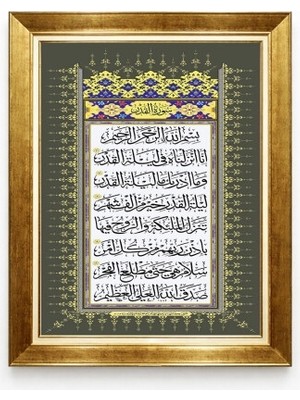 سورة القدر
بسم الله الرحمن الرحيم
إنا أنزلناه في ليلة القدر
وما أدراك ما ليلة القدر
ليلة القدر خير من ألف شهر
تنزل الملائكة والروح فيها
بإذن ربهم من كل أمر
سلام هي حتى مطلع الفجر
صدق الله العلي العظيم